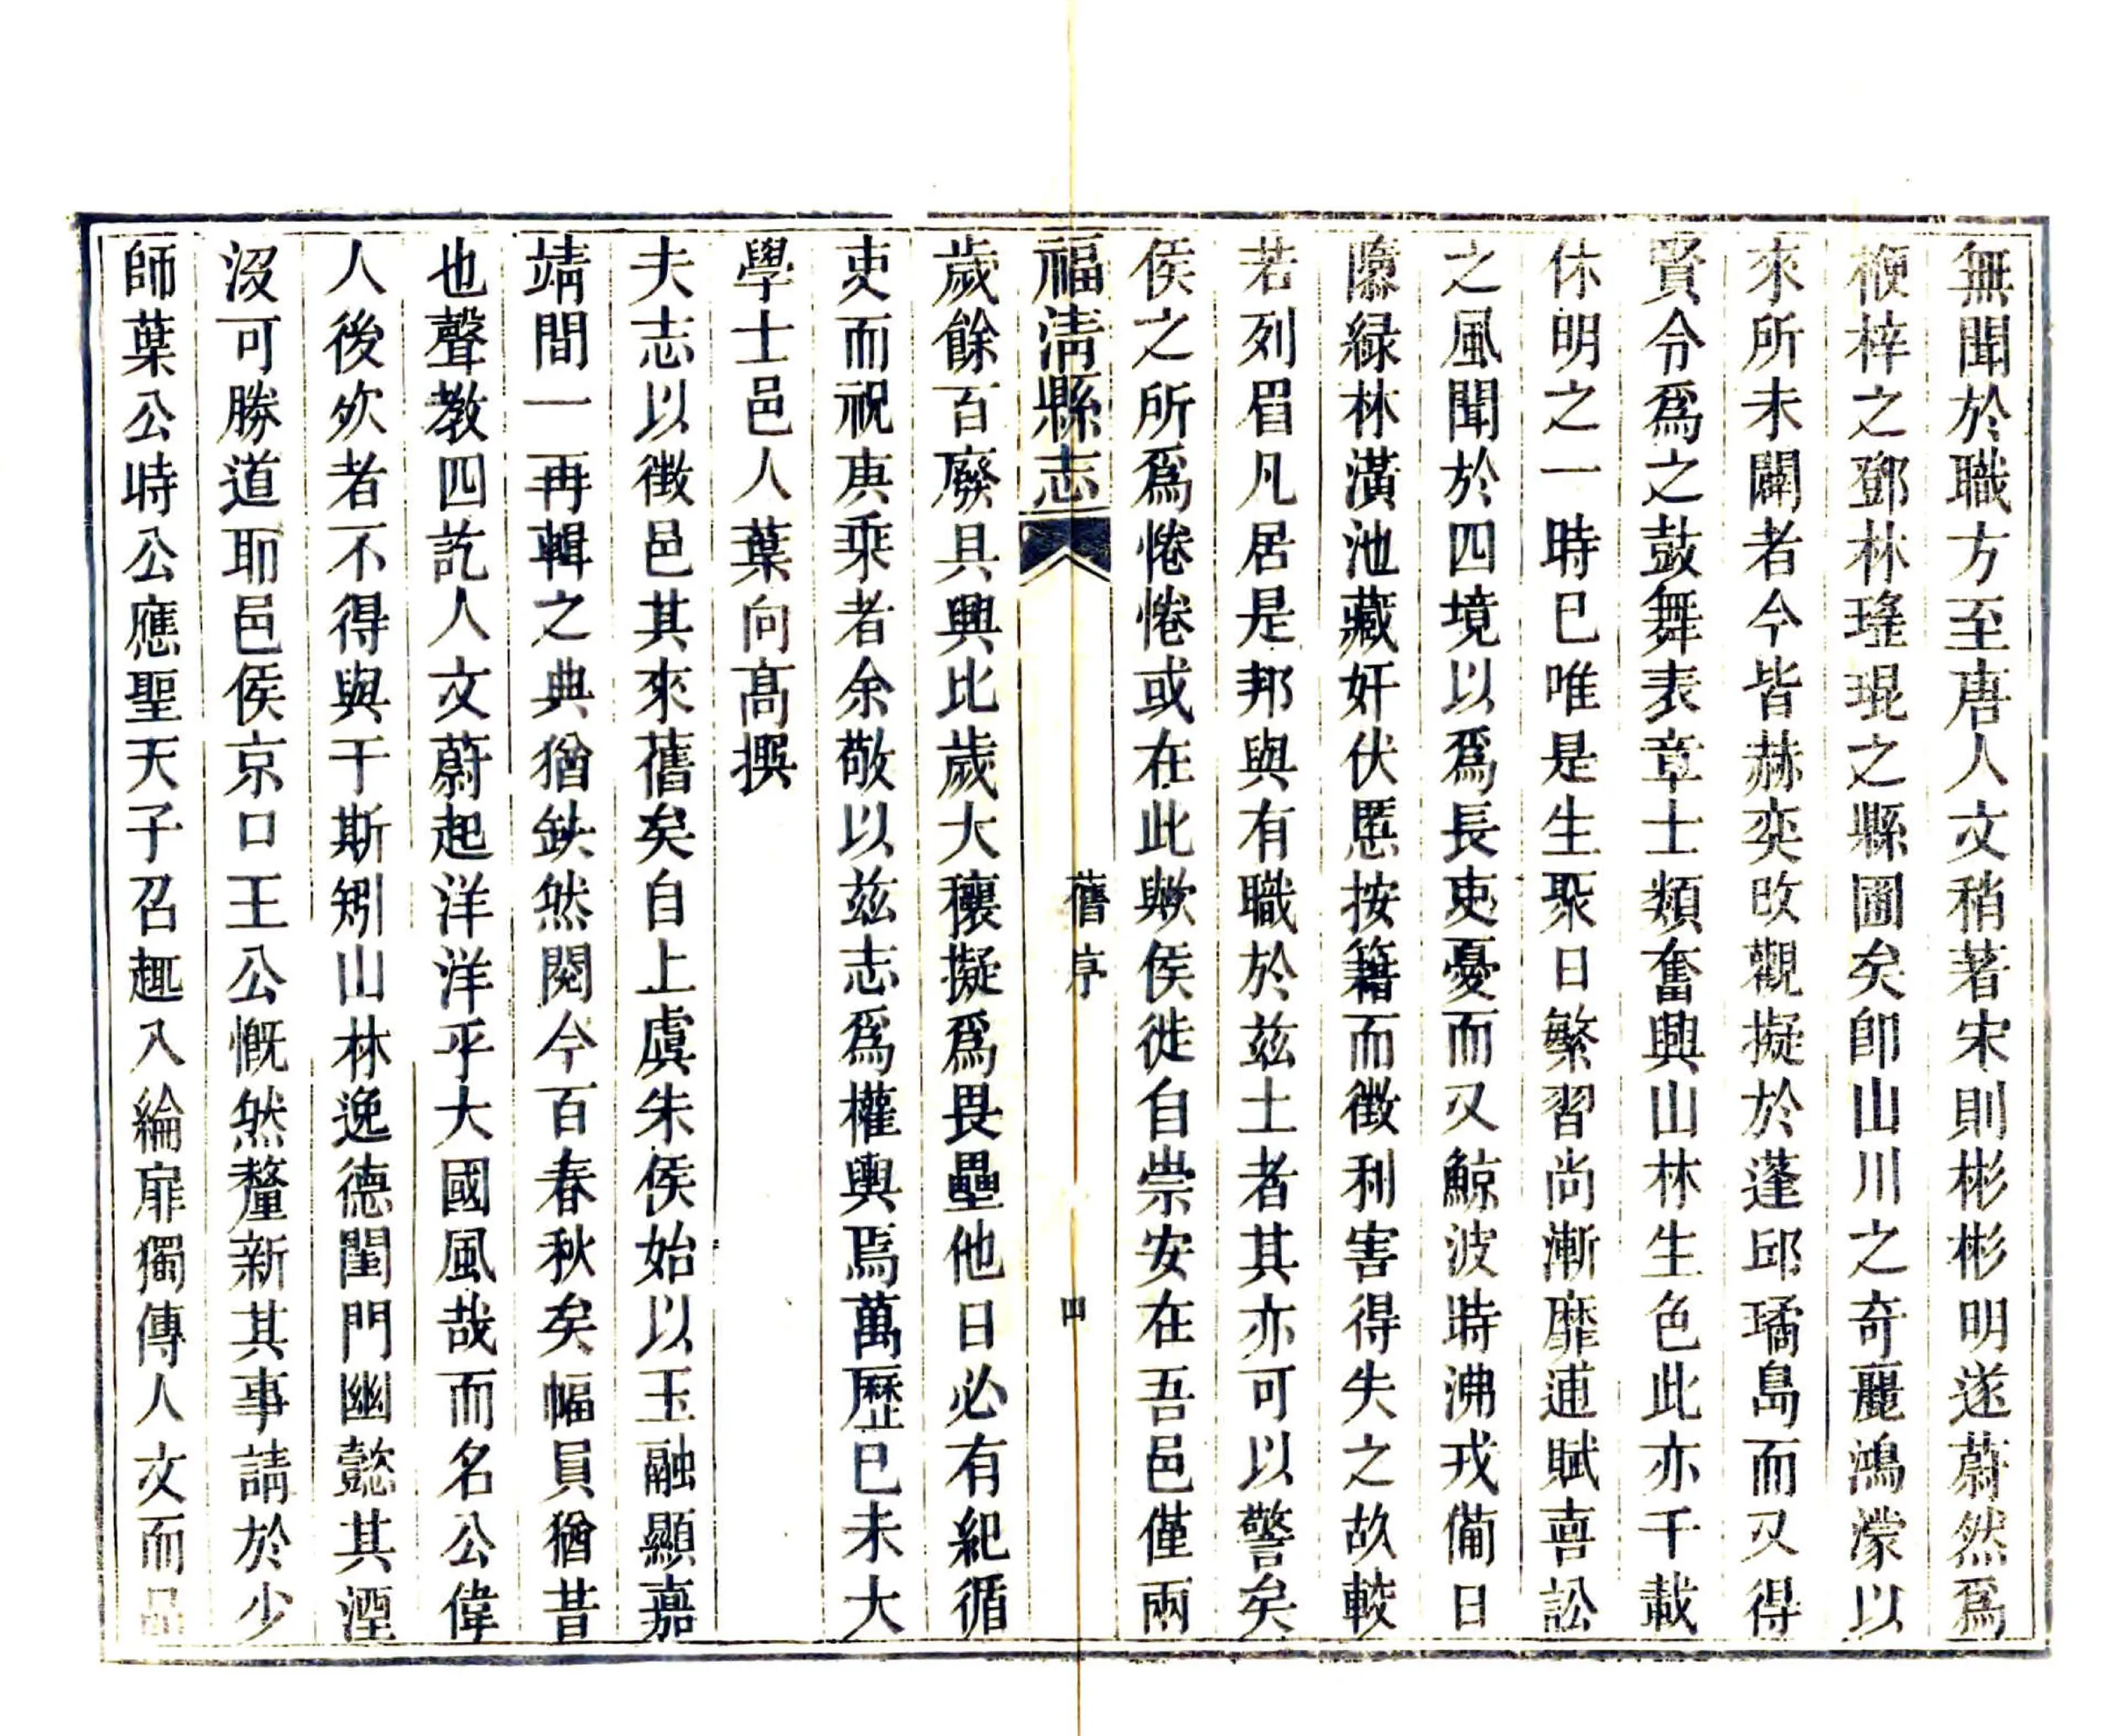 無聞於職方至唐人文稍著宋則彬彬明遂蔚然爲
楩梓之鄧林瑾琨之縣圃矣卽山川之奇麗鴻濛以
來所未闢者今皆赫奕改觀擬於蓬邱璚島而又得
賢令爲之鼓舞表章士類奮興山林生色此亦千載
休明之一時已唯是生聚日繁習尚漸靡逋賦喜訟
之風聞於四境以爲長吏憂而又鯨波時沸戎備日
隳緑林潢池藏奸伏慝按籍而徵利害得失之故較
若列眉凡居是邦與有職於茲土者其亦可以警矣
侯之所爲惓惓或在此歟侯徙自崇安在吾邑僅兩
福清縣志
舊序
四
歲餘百廢具興比歲大穰擬爲畏壘他日必有紀循
吏而祝庚乘者余敬以茲志爲權輿焉萬歷已未大
學士邑人葉向高撰
夫志以徵邑其來舊矣自上虞朱侯始以玉融顯嘉
靖間一再輯之典猶缺然閱今百春秋矣幅員猶昔
也聲教四訖人文蔚起洋洋乎大國風哉而名公偉
人後欻者不得與于斯矧山林逸德閨門幽懿其湮
沒可勝道耶邑侯京口王公慨然釐新其事請於少
師葉公時公應聖天子召趣入綸扉獨傳人文而品